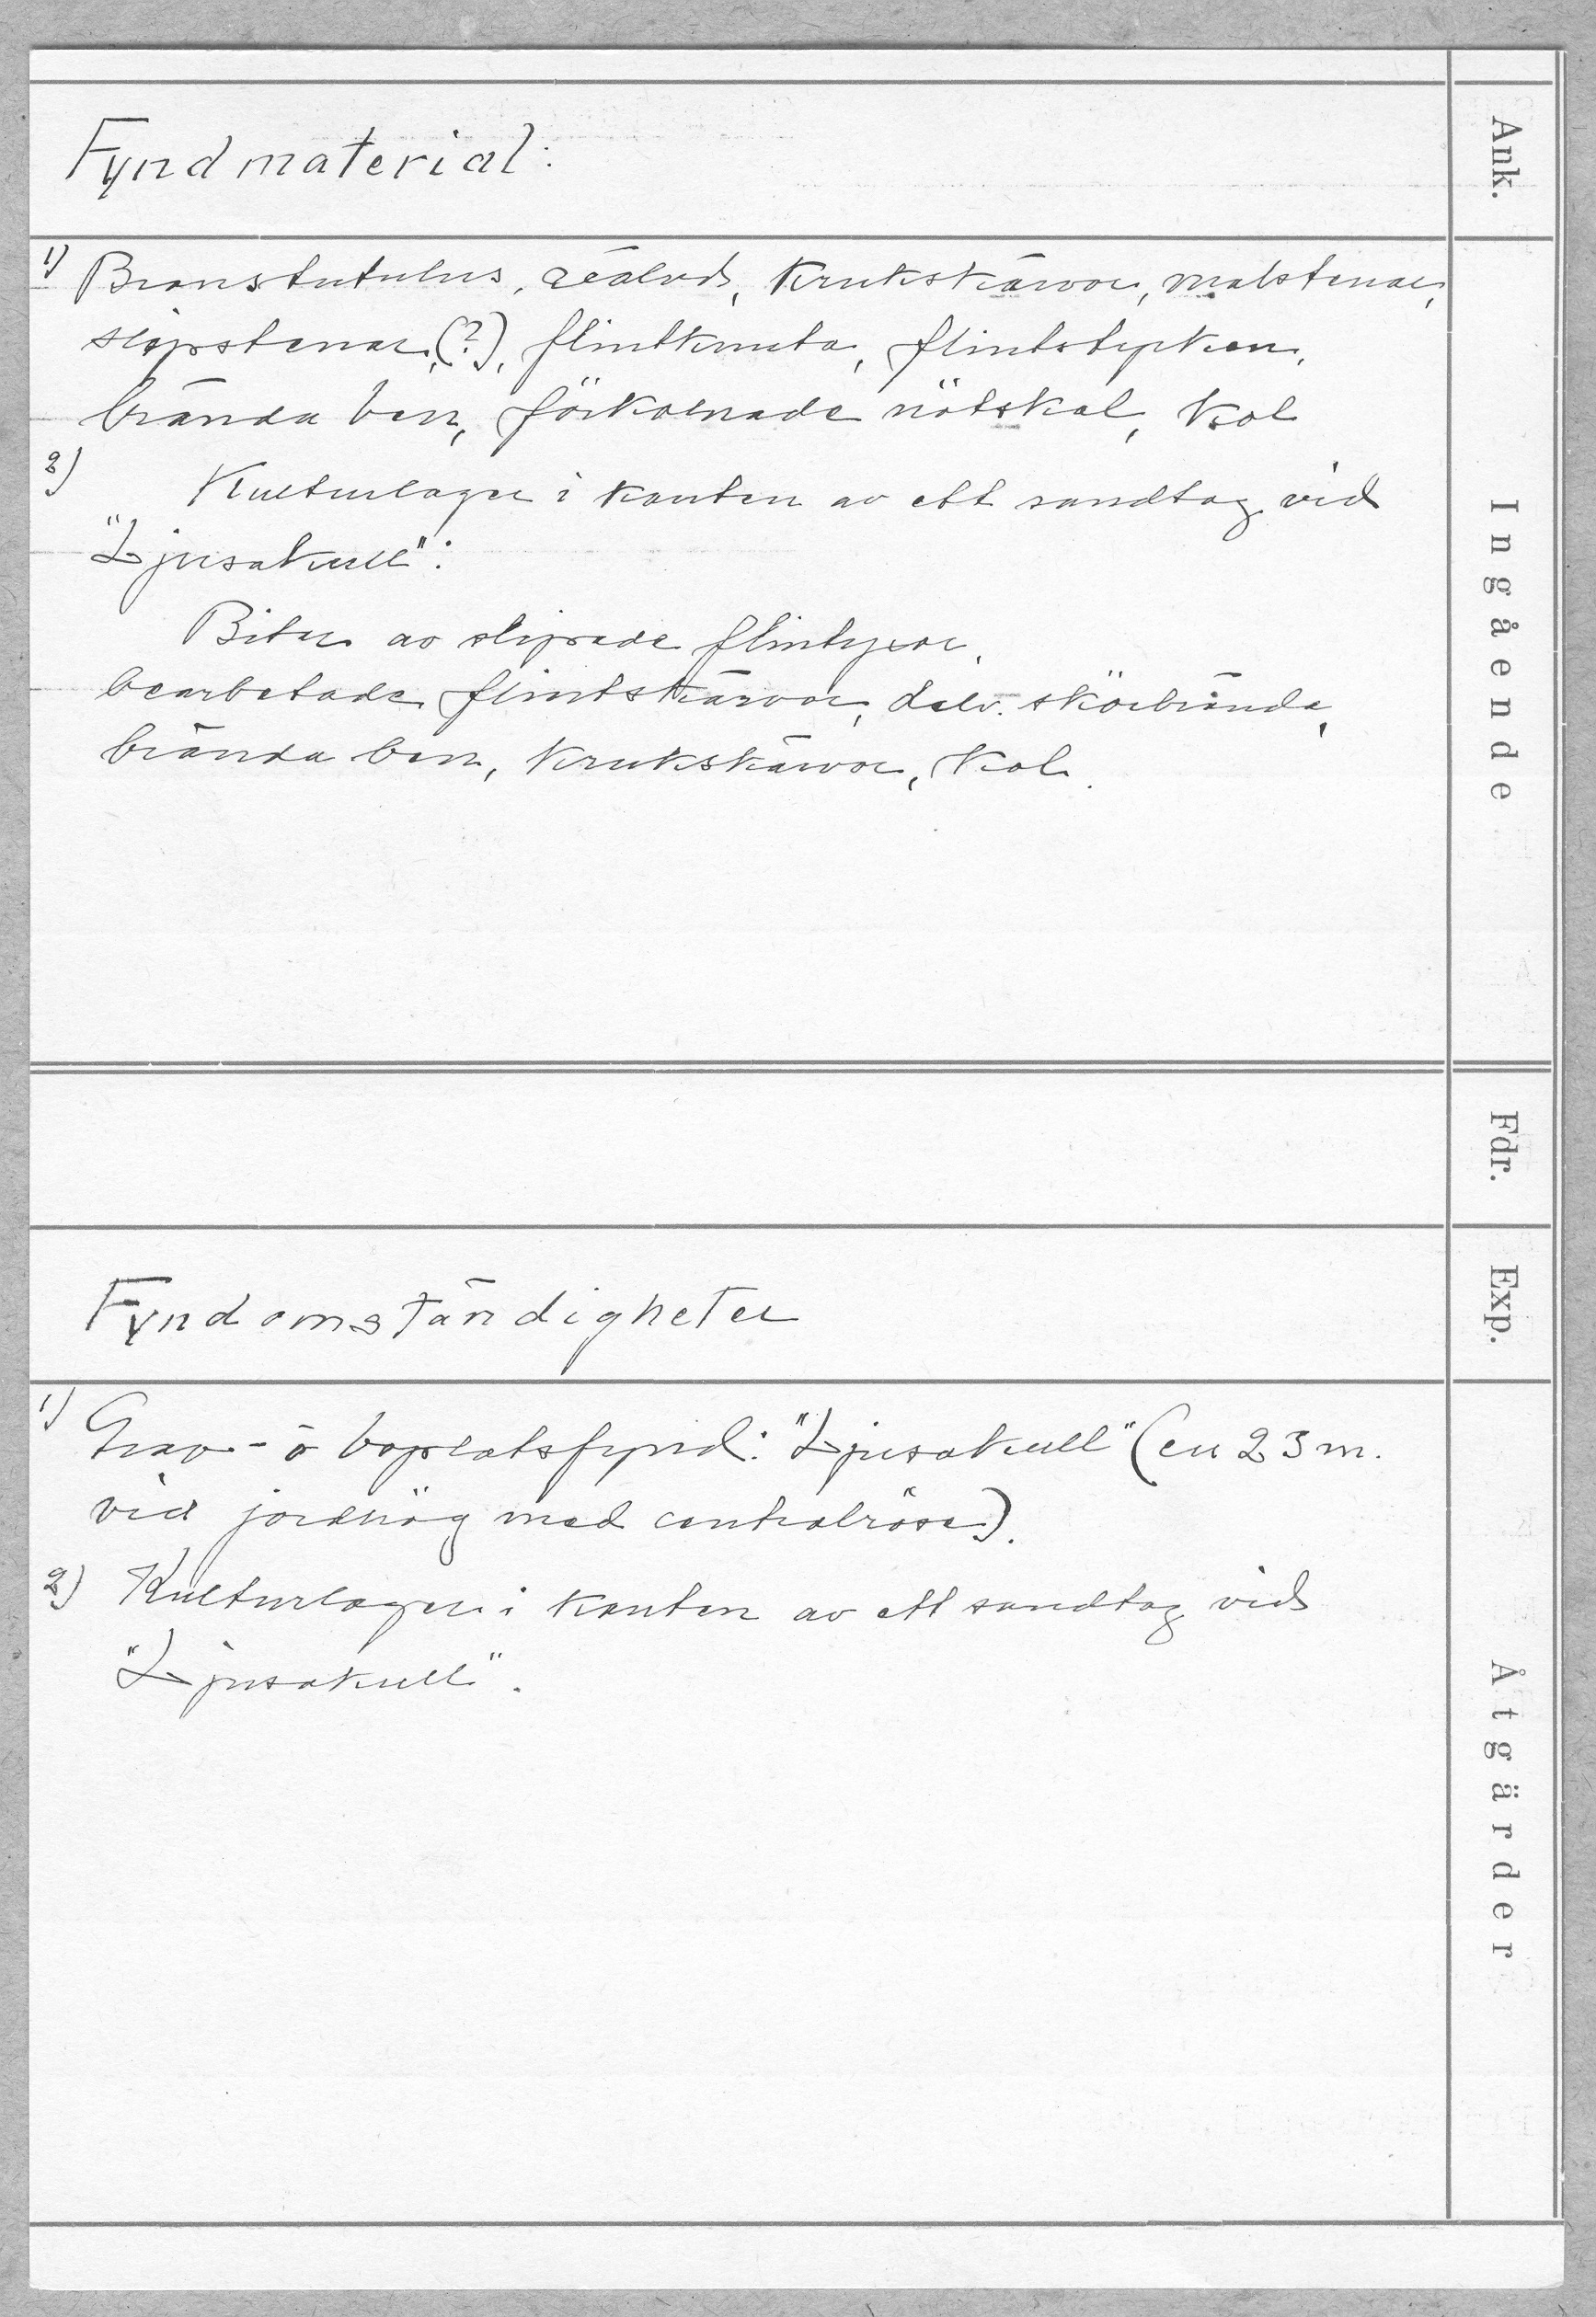 Fyndmaterial:
Ank.
1) Bronstutulus, krukskärvor, malstenar,
slipstenar (?), flintknuta, flintstycken,
brända ben, förkolnade nötskal, kol
2) Kulturlager i kanten av ett sandtag vid
"Ljusakull":
Bitar av slipade flintyxor,
bearbetade flintskärvor, delv. skörbrända,
brända ben, krukskärvor, kol.
Ingående
Fdr.
Fyndomständigheter
Exp.
1) Grav- o boplatsfynd: "Ljusakull" (en 23 m.
vid jordhög med centralröse).
2) Kulturlager i kanten av ett sandtag vid
"Ljusakull".
Åtgärder